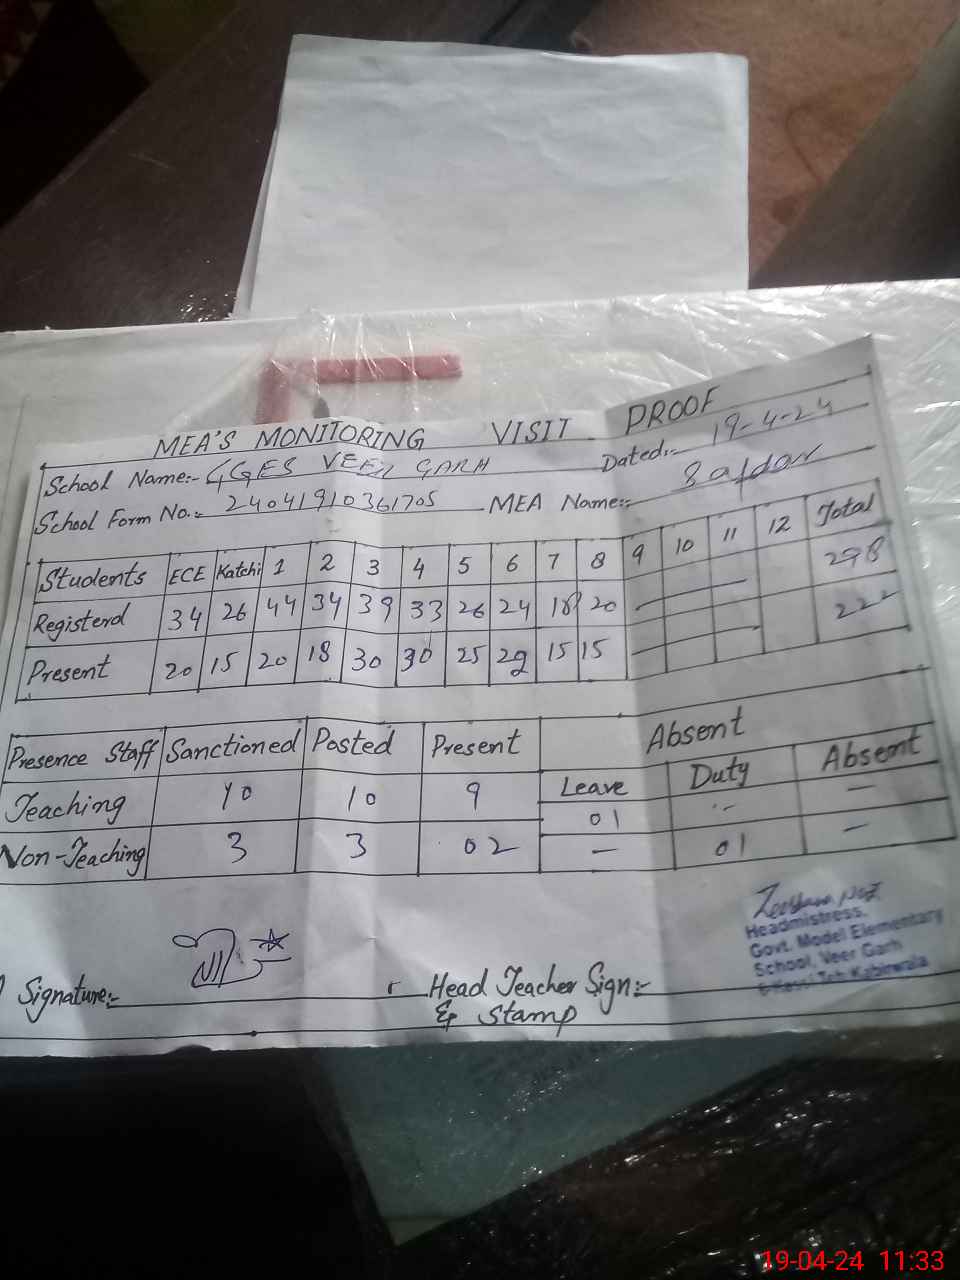 MEA'S MONITORING VISIT PROOF
School Name:- GGES VEER GARH Dated:- 19-4-24
School Form No.:- 24041910361705 MEA Name:- Safdar
Students ECE Katchi 1 2 3 4 5 6 7 8 9 10 11 12 Total
Registerd 34 26 44 34 39 33 26 24 18 20 298
Present 20 15 20 18 30 30 25 29 15 15 222
Presence Staff Sanctioned Posted Present Absent
Leave Duty Absent
Teaching 10 10 9 01 - —
Non-Teaching 3 3 02 — 01 —
Headmistress,
Govt. Model Elementary
School, Veer Garh
Teh Kabirwala
Signature:- Head Teacher Sign:-
& Stamp
19-04-24 11:33